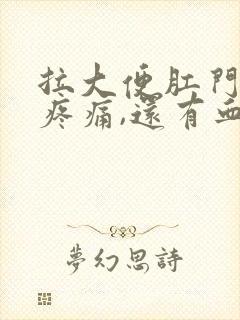 拉大便肛門
疼痛,還有血
夢幻思詩